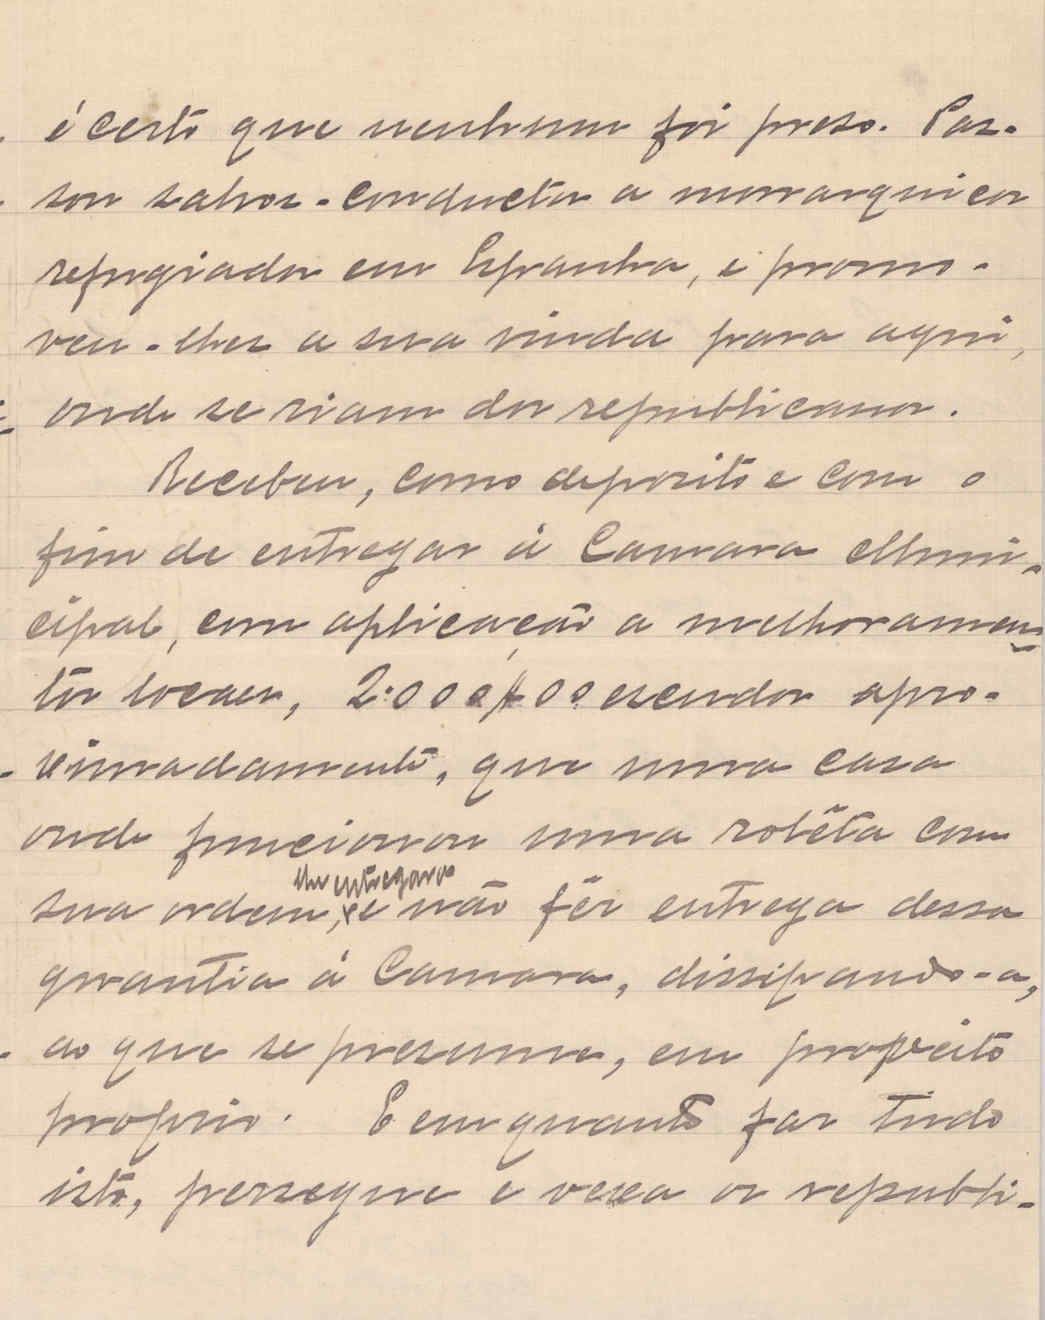 é certo que nenhum foi preso. Pas-
sou salvos-conductos a monarquicos
refugiados em Espanha, e promo-
veu-lhes a sua vinda para aqui,
onde se riam dos republicanos.
Recebeu, como deposito e com o
fim de entregar á Camara Muni-
cipal, com aplicação a melhoramen-
tos locaes, 2:000$00 escudos apro-
ximadamente, que numa casa
onde funcionou uma rolêta com
lhe entregaram
sua ordem, e não fêz entrega dessa
quantia á Camara, dissipando-a,
ao que se presume, em proveito
proprio. E emquanto faz tudo
isto, persegue e vexa os republi-